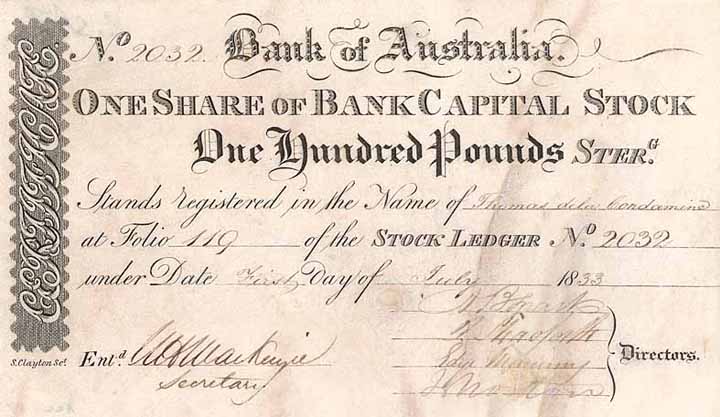 CERTIFICATE.
No. 2032. Bank of Australia.
ONE SHARE OF BANK CAPITAL STOCK
One Hundred Pounds STERG.
Stands registered in the Name of Thomas dela Condamine
at Folio 119 of the STOCK LEDGER No. 2032
under Date First Day of July 1833
Entd. Mackenzie
Secretary
Directors.
S. Clayton Sct.